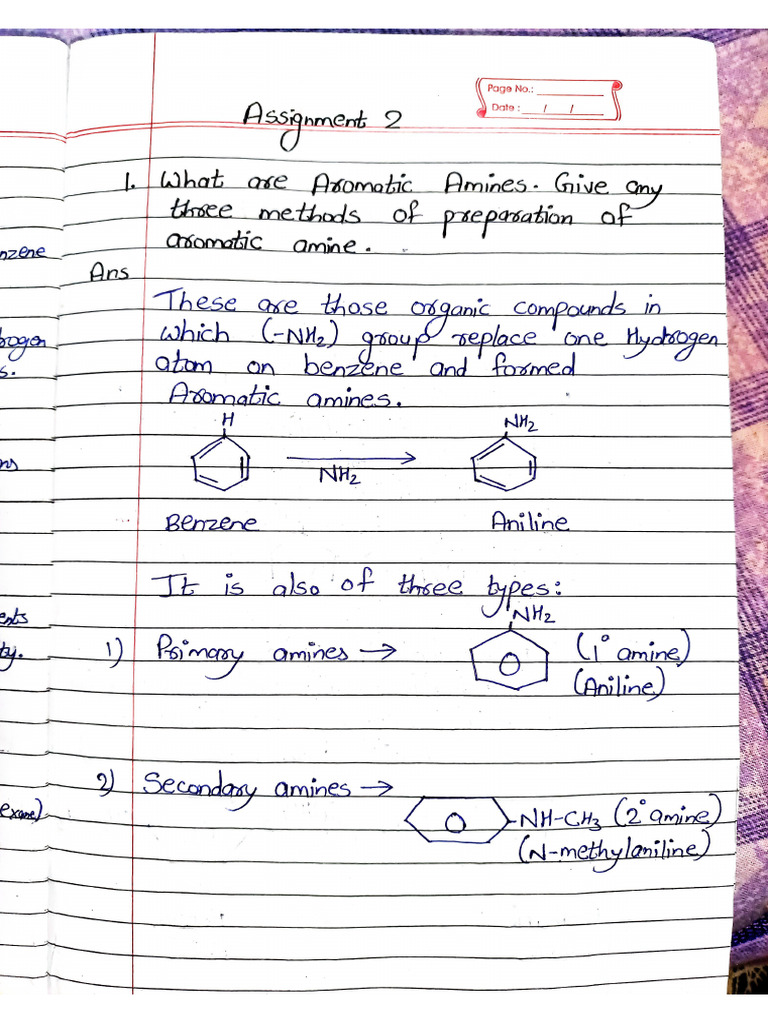 Page No.:
Date : / /
Assignment 2
1. What are Aromatic Amines. Give any
three methods of preparation of
aromatic amine.
Ans
These are those organic compounds in
which (-NH2) group replace one Hydrogen
atom on benzene and formed
Aromatic amines.
H
NH2
NH2
Benzene
Aniline
It is also of three types:
NH2
1) Primary amines → (1° amine)
(Aniline)
2) Secondary amines →
NH-CH3 (2° amine)
(N-methylaniline)
nzene
rogen
s.
ns
ents
ty.
exane)